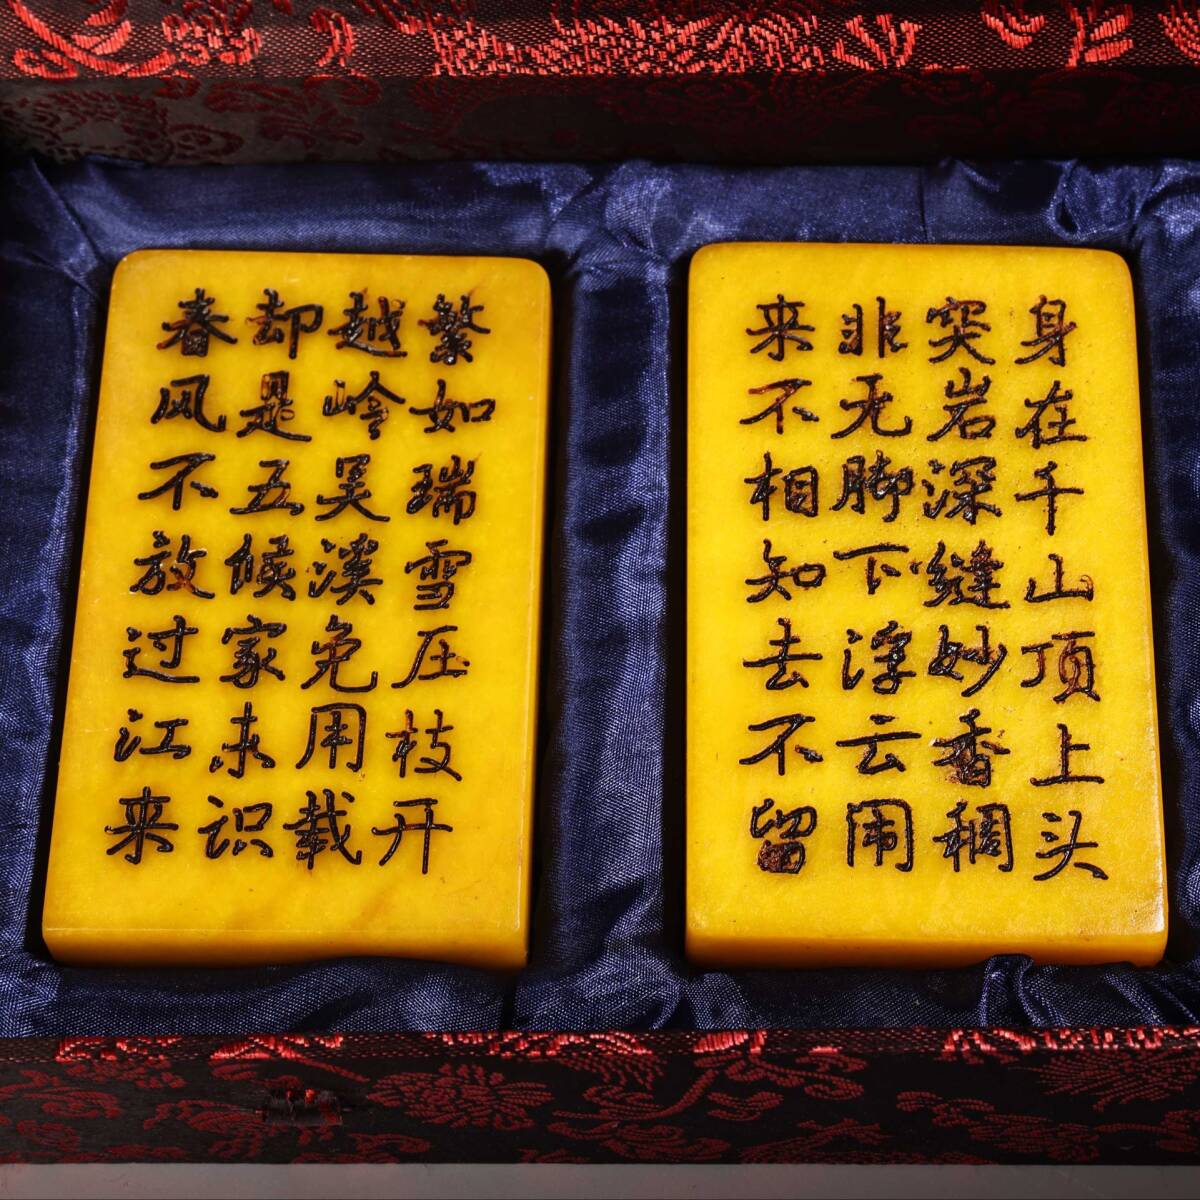 身在千山顶上头
突岩深缝妙香稠
非无脚下浮云闹
来不相知去不留
繁如瑞雪压枝开
越岭吴溪免用载
却是五候家未识
春风不放过江来